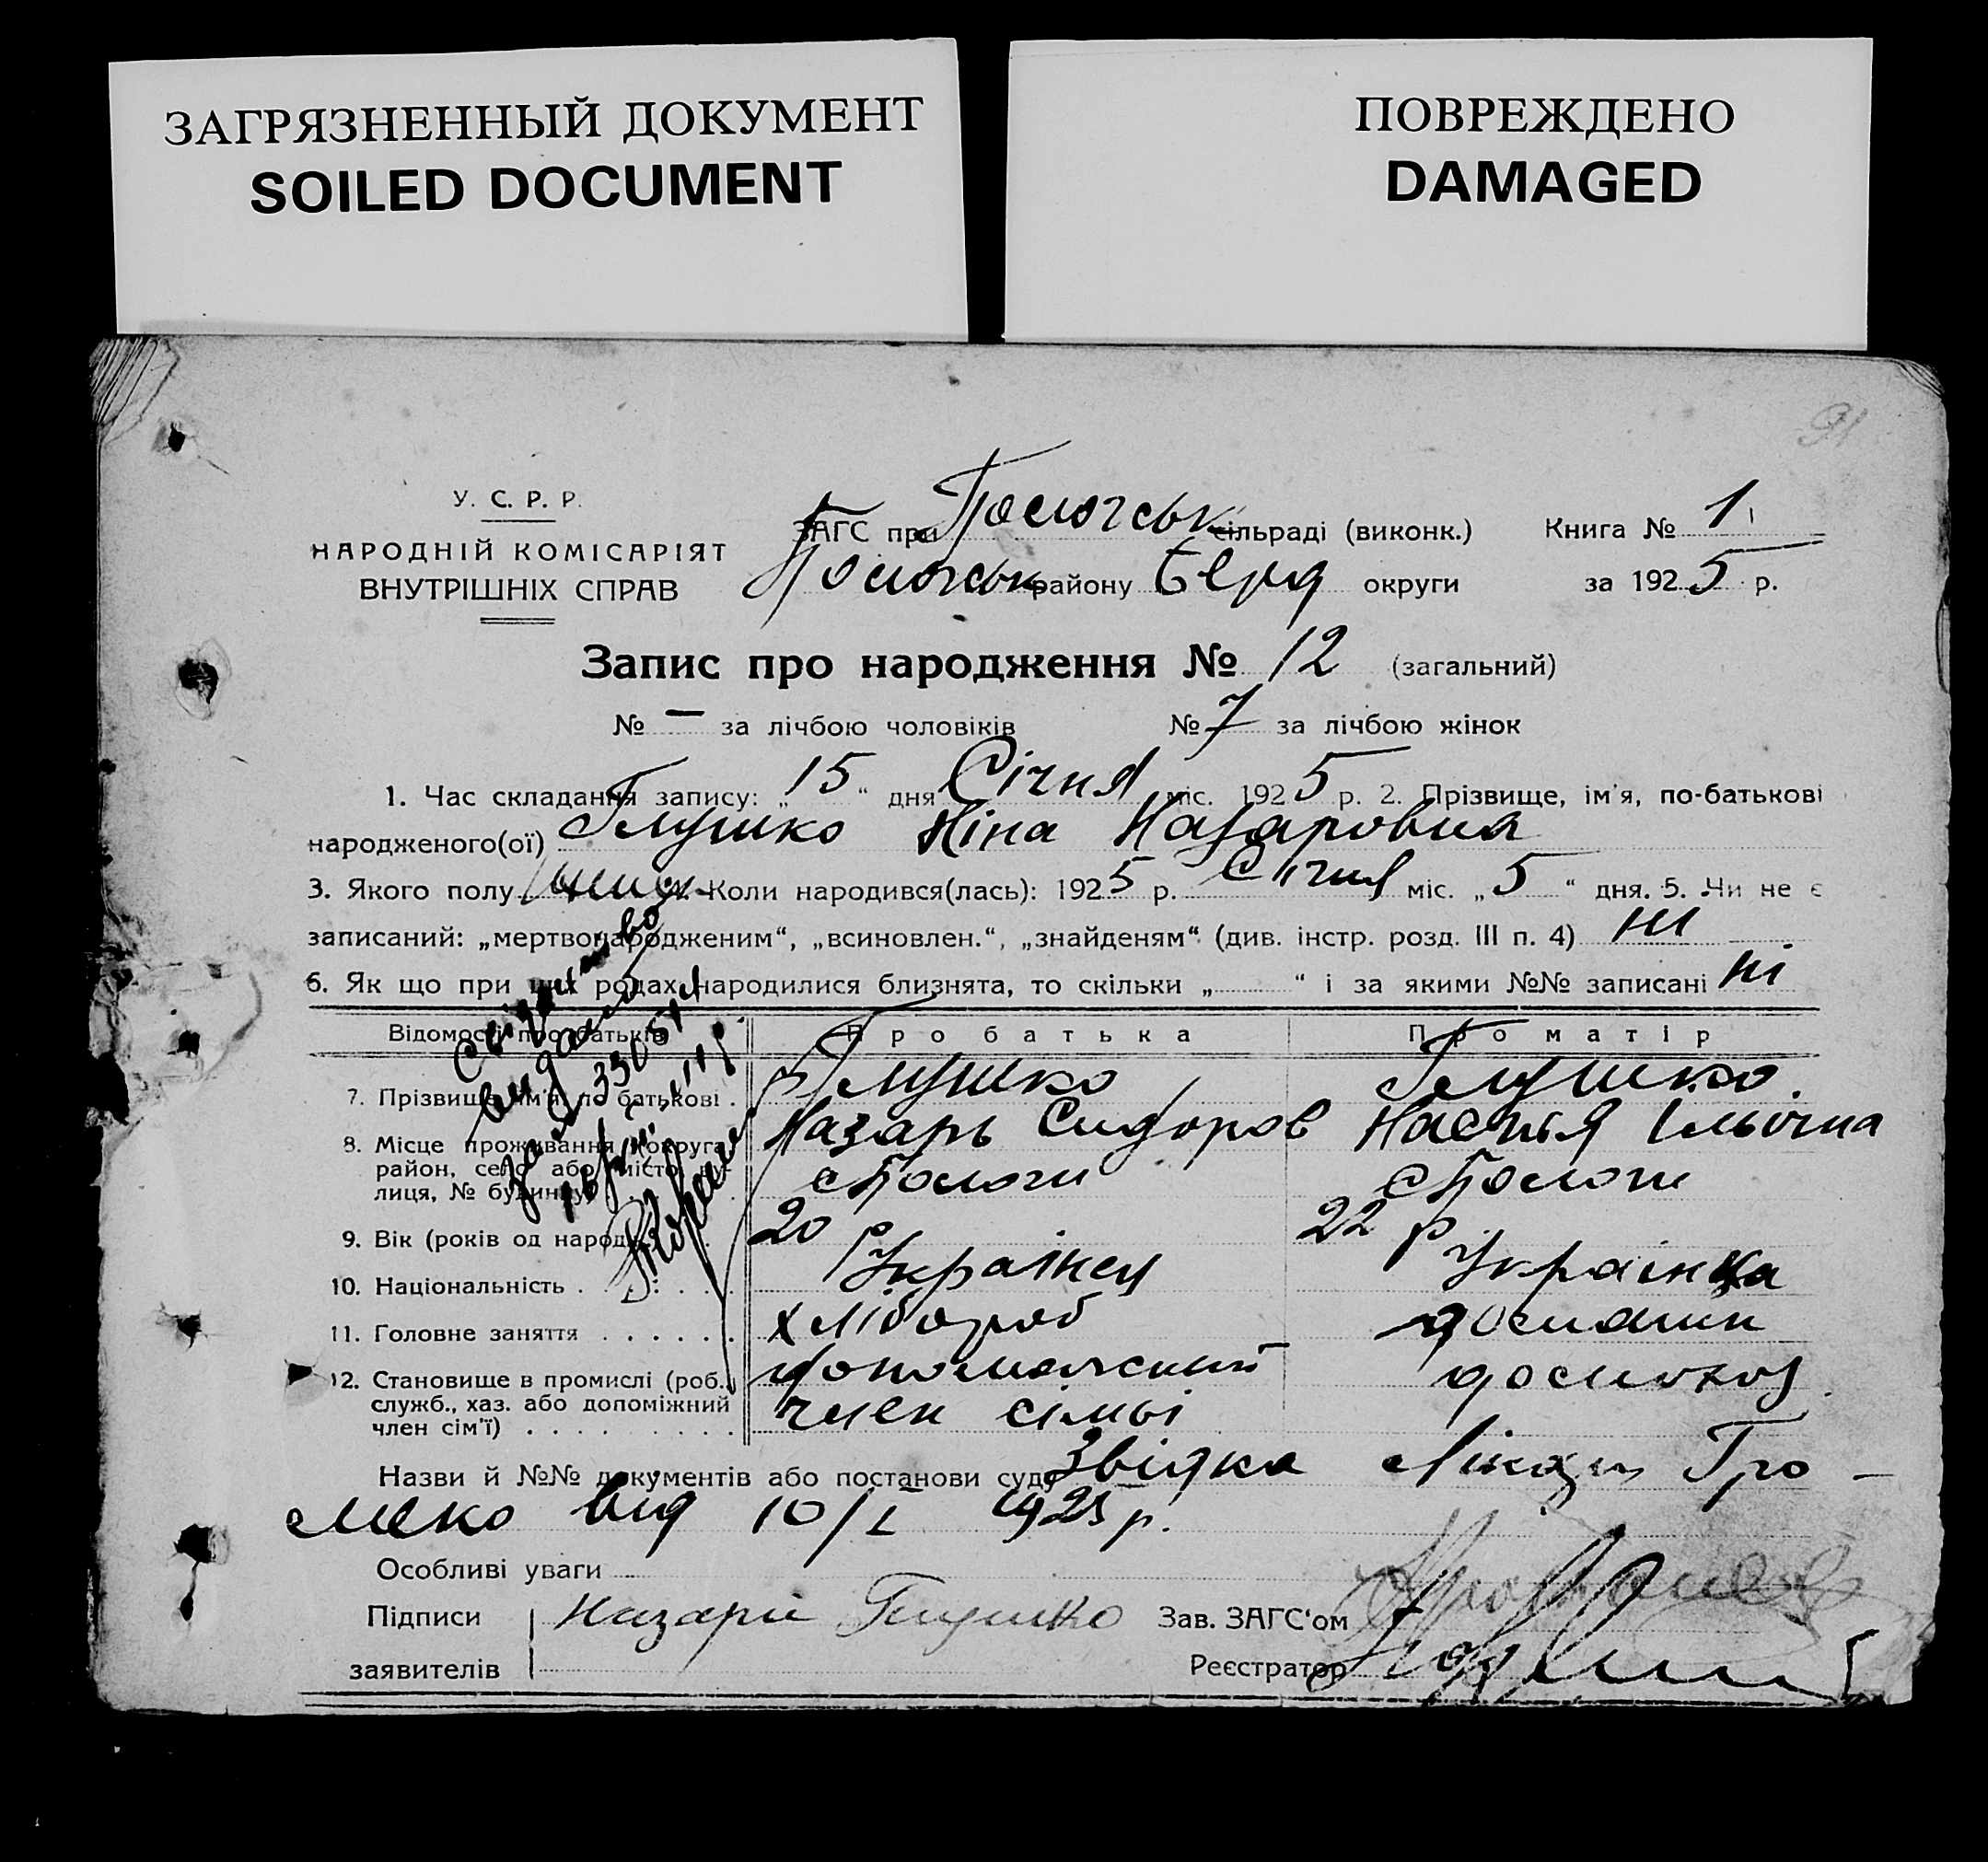 ЗАГРЯЗНЕННЫЙ ДОКУМЕНТ
SOILED DOCUMENT
ПОВРЕЖДЕНО
DAMAGED
91
У. С. Р. Р.
НАРОДНІЙ КОМІСАРІЯТ
ВНУТРІШНІХ СПРАВ
ЗАГС при Пологськ сільраді (виконк.) Книга № 1
Пологськ району Берд округи за 1925 р.
Запис про народження № 12 (загальний)
№ — за лічбою чоловіків № 7 за лічбою жінок
1. Час складання запису: „15“ дня Січня міс. 1925 р. 2. Прізвище, ім'я, по-батькові
народженого(ої) Глушко Ніна Назаровна
3. Якого полу 4. Коли народився(лась): 1925 р. Січня міс. „5“ дня. 5. Чи не є
записаний: „мертвонародженим“, „всиновлен.“, „знайденям“ (див. інстр. розд. III п. 4) ні
6. Як що при цих родах народилися близнята, то скільки „ “ і за якими №№ записані ні
Відомості про батьків Про батька Про матір
7. Прізвище, ім'я, по батькові . Глушко Назарь Сидоров Глушко Настья Ільічна
8. Місце проживання (округа, район, село або місто, вулиця, № будинку) с Пологи с Пологи
9. Вік (років од народ.) 20 р 22 р
10. Національність . . . . . . Українец Українка
11. Головне заняття . . . . . . хлібороб
12. Становище в промислі (роб., служб., хаз. або допоміжний член сім'ї) . . . . . . . . . член сімьі
Назви й №№ документів або постанови суду Звідка Гро-
меко від 10/I 1925 р.
Особливі уваги
Підписи Назарій Глушко Зав. ЗАГС'ом
заявителів Реєстратор